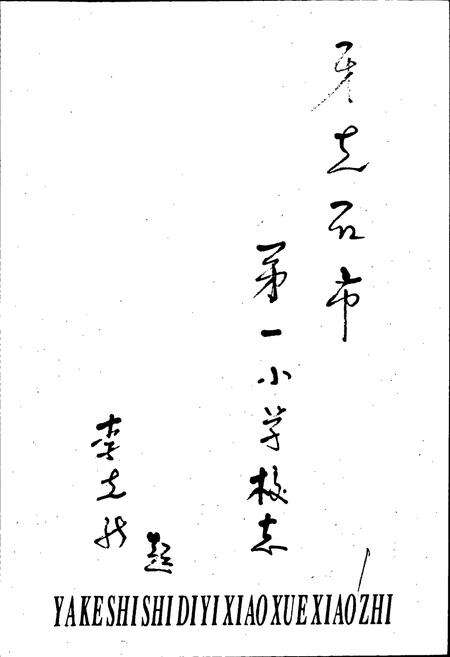 牙克石市
第一小学校志
李克
题
YAKESHISHI DIYI XIAOXUE XIAOZHI